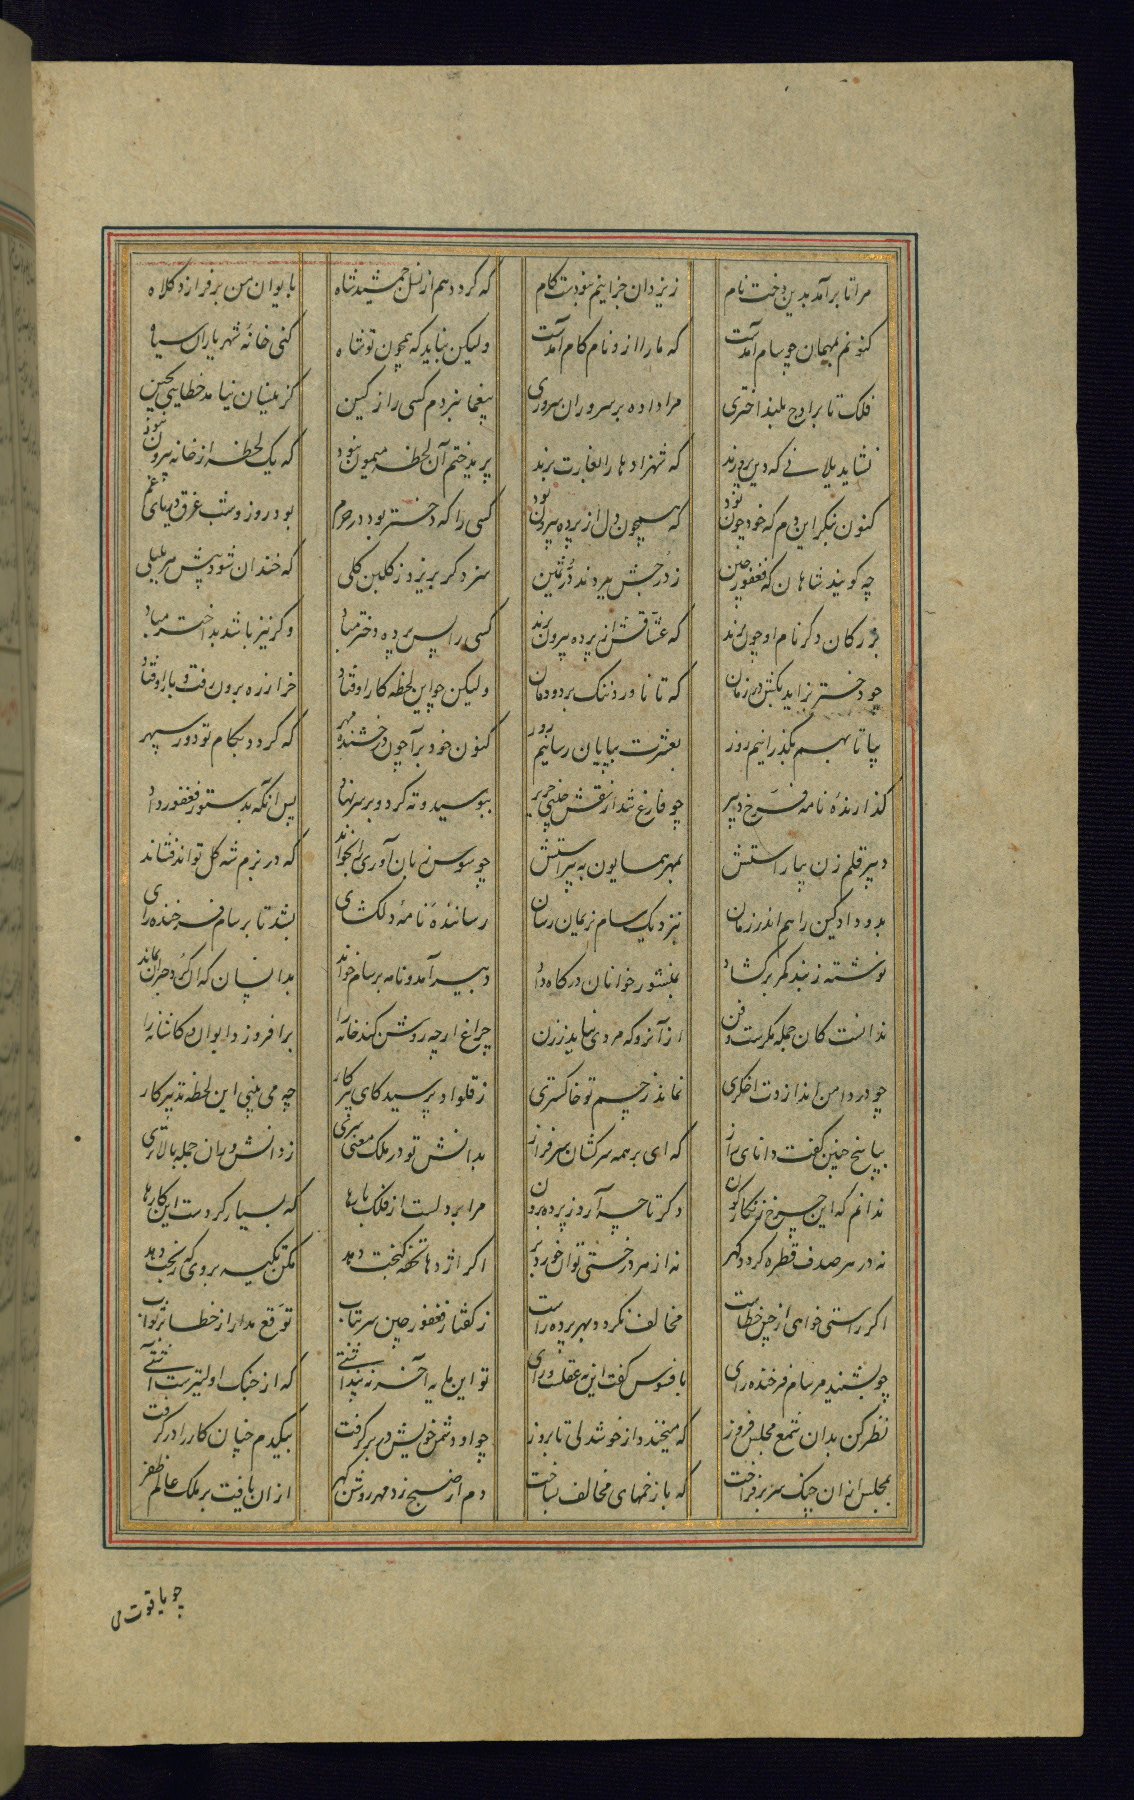 مرا تا برآمد بدین دخت نام ز یزدان جز اینم نبودست کام که گردد هم از نسل جمشید شاه بایوان من بر فرازد کلاه
کنونم بمهمان چو سام آمدست که ما را ازو نام کام آمدست ولیکن نباید که همچون تو شاه کنی خانهٔ شهریاران سیاه
فلک تا بر اوج بلند اختری مرا داده بر سروران سروری بیغما نبردم کسی را ز کین کز ایشان نیامد خطایی بچین
نشاید یلانی که دین پرورند که شهزاده‌ها را بغارت برند پریدختم آن لحظه میمون شود که یک لحظه از خانه بیرون شود
کنون بنگر این دم که خود چون بود که همچون دل از پرده بیرون بود کسی را که دختر بود در حرم بود روز و شب غرق دریای غم
چه گویند شاهان که فغفور چین ز درجش ببردند در ثمین سزد گر بریزد ز گلبن گلی که خندان شود پیش هر بلبلی
بزرگان دگر نام او چون برند که عشاقش از پرده بیرون برند کسی را پس پرده دختر مباد وگر نیز باشد بد اختر مباد
چو دختر بزاید بکش در زمان که تا ناورد ننگ بر دودمان ولیکن چو این لحظه کار اوفتاد خر از ره برون رفت و بار اوفتاد
بیا تا بهم بگذرانیم روز بعشرت بپایان رسانیم روز کنون خود برآ چون درخشنده مهر که گردد بکام تو دور سپهر
گذارندهٔ نامه فرخ دبیر چو فارغ شد از نقش چینی حریر ببوسید و ته کرد و بر سر نهاد پس آنگه بدستور فغفور داد
دبیر قلم زن بیاراستش بمهر همایون بپیراستش چو سوسن زبان‌آوری را بخواند که در بزم شه گل تواند فشاند
بدو داد کین را هم اندر زمان بنزدیک سام نریمان رسان رسانندهٔ نامهٔ دلگشای بشد تا بر سام فرخنده رای
نوشته ز بند کمر برگشاد بمنشور خوانان درگاه داد دبیر آمد و نامه بر سام خواند بدانسان که آن گرد حیران بماند
ندانست کان جمله مکرست و فن از آنرو که مردی نیاید ز زن چراغ ارچه روشن کند خانه را برافروزد ایوان و کاشانه را
چو در دامن اندازدت اخگری نماند ز جسم تو خاکستری ز قلواد پرسید کای پیر کار چه می‌بینی این لحظه تدبیر کار
بپاسخ چنین گفت دانای راز که ای بر همه سرکشان سرفراز بدانش تو در ملک معنی سری ز دانش وران جمله بالاتری
ندانم که این چرخ زنگارگون دگر تا چه آرد ز پرده برون مرا بر دلست از فلک بارها که بسیار کردست این کارها
نه در هر صدف قطره گردد گهر نه از هر درختی توان خورد بر اگر اژدها تحفه گنجت دهد مکن تکیه بر وی که رنجت دهد
اگر راستی خواهی از چین خطاست مخالف نگردد بهر پرده راست ز گفتار فغفور چین سر بتاب توقع مدار از خطا بر ثواب
چو بشنید مر سام فرخنده رای بافسوس گفت این نه عقلست و رای تو این مایه آخر نه پنداشتی که از جنگ اولیترست آشتی
نظر کن بدان شمع مجلس فروز که میخندد از خوشدلی تا بروز چو او دشمن خویش در بر گرفت بیکدم چنان کار را درگرفت
بمجلس از آن چنگ سر برفراخت که با زخمهای مخالف بساخت دم از صبح زد مهر روشن گهر از آن یافت بر ملک عالم ظفر
چو یاقوت می